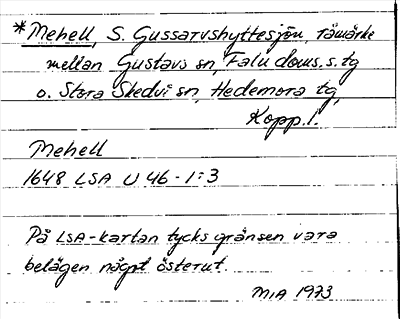 *Mehell, S. Gussarvshyttesjön, råmärke
mellan Gustavs sn, Falu doms. s. tg
o. Stora Skedvi sn, Hedemora tg,
Kopp. l.
Mehell
1648 LSA U 46 - 1:3
På LSA-kartan tycks gränsen vara
belägen något österut.
MIA 1973